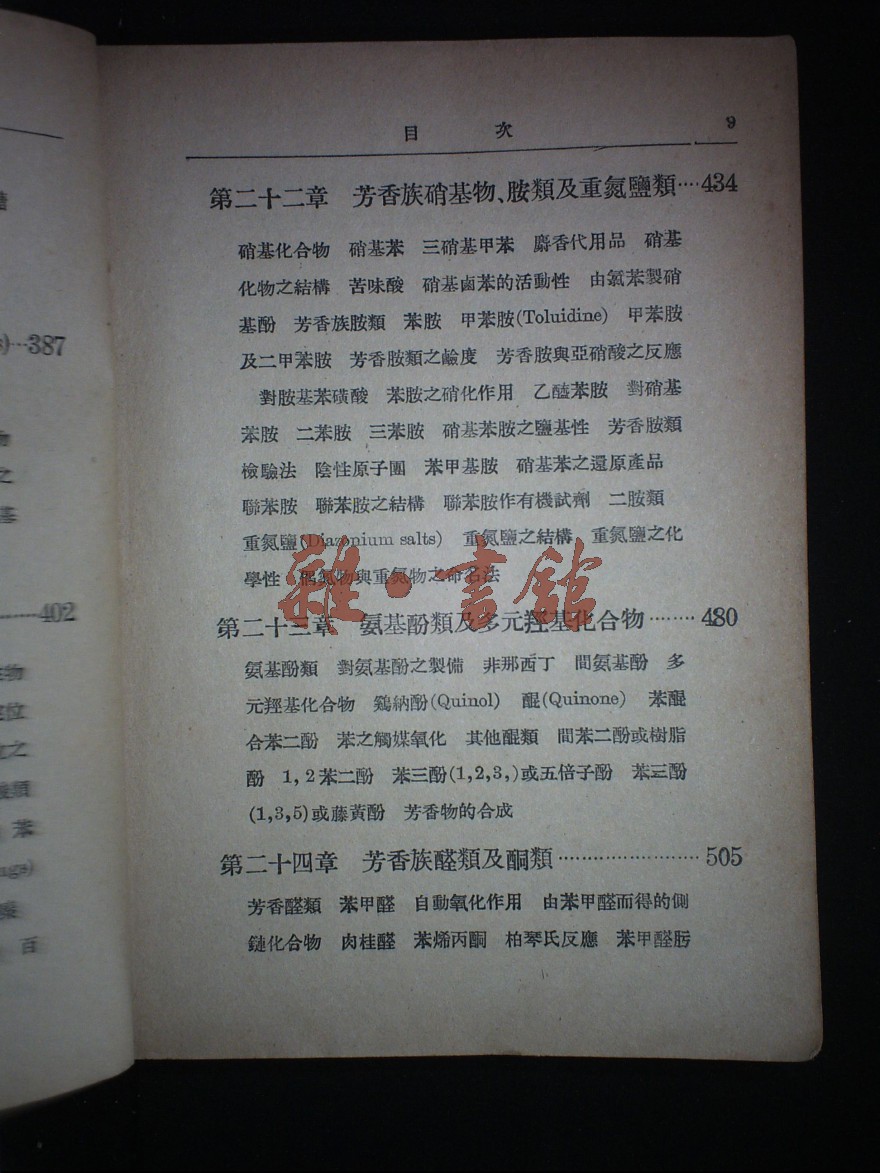 目 次 9
第二十二章 芳香族硝基物、胺類及重氮鹽類····434
硝基化合物 硝基苯 三硝基甲苯 麝香代用品 硝基
化物之結構 苦味酸 硝基鹵苯的活動性 由氯苯製硝
基酚 芳香族胺類 苯胺 甲苯胺(Toluidine) 甲苯胺
及二甲苯胺 芳香胺類之鹼度 芳香胺與亞硝酸之反應
對胺基苯磺酸 苯胺之硝化作用 乙醯苯胺 對硝基
苯胺 二苯胺 三苯胺 硝基苯胺之鹽基性 芳香胺類
檢驗法 陰性原子團 苯甲基胺 硝基苯之還原產品
聯苯胺 聯苯胺之結構 聯苯胺作有機試劑 二胺類
重氮鹽(Diazonium salts) 重氮鹽之結構 重氮鹽之化
學性 偶氮物與重氮物之命名法
第二十三章 氨基酚類及多元羥基化合物········480
氨基酚類 對氨基酚之製備 非那西丁 間氨基酚 多
元羥基化合物 鷄納酚(Quinol) 醌(Quinone) 苯醌
合苯二酚 苯之觸媒氧化 其他醌類 間苯二酚或樹脂
酚 1,2苯二酚 苯三酚(1,2,3,)或五倍子酚 苯三酚
(1,3,5)或藤黃酚 芳香物的合成
第二十四章 芳香族醛類及酮類························505
芳香醛類 苯甲醛 自動氧化作用 由苯甲醛而得的側
鏈化合物 肉桂醛 苯烯丙酮 柏琴氏反應 苯甲醛肟
雜·書館
387
402
物
之
基
位
之
苯
百